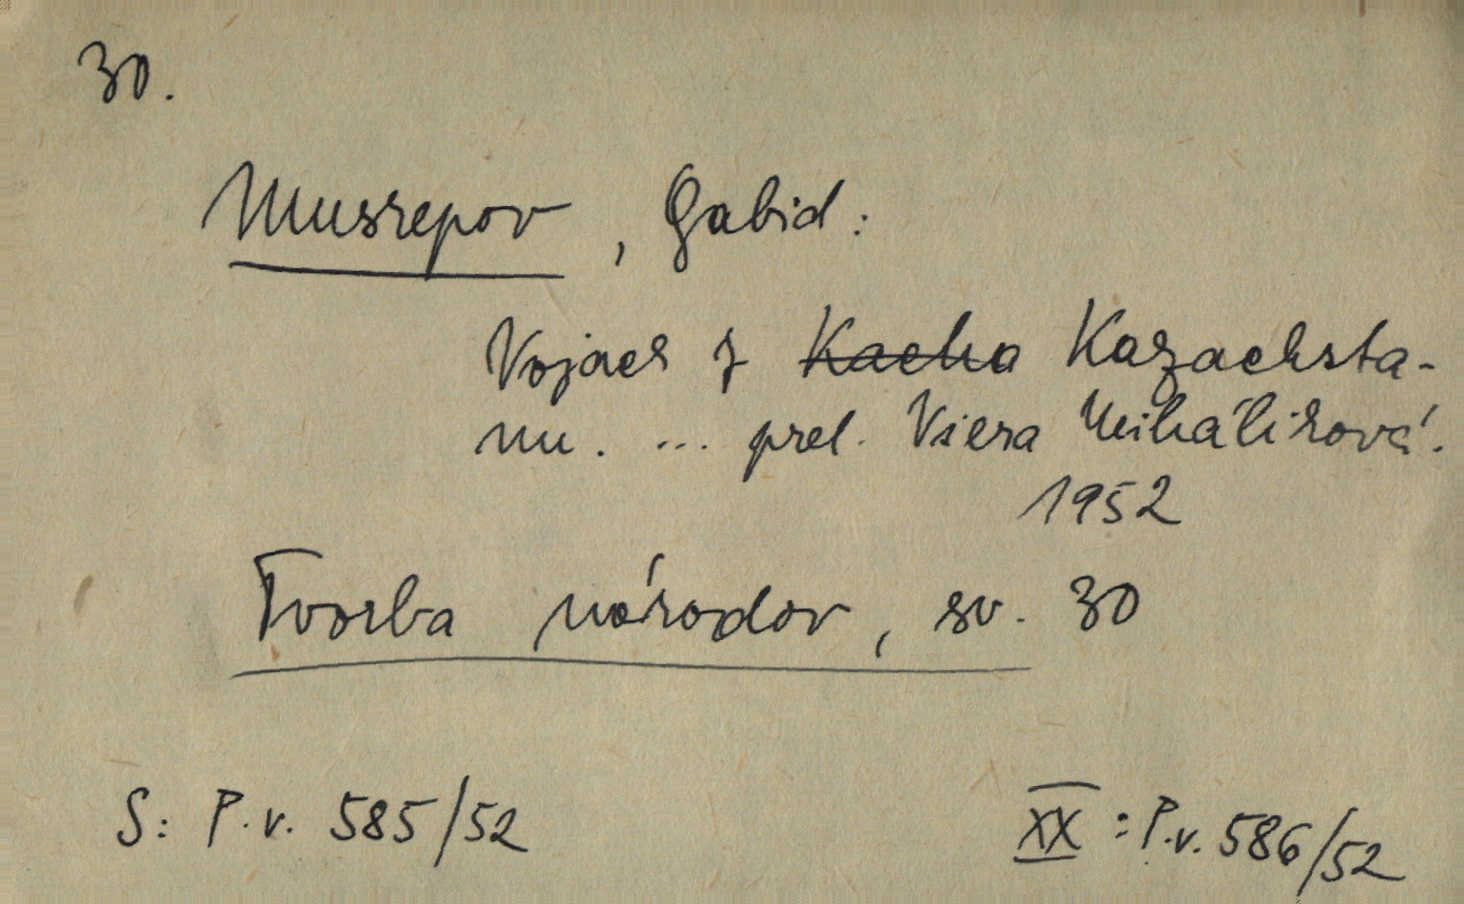 30.
Musrepov, Gabid:
Vojak z Kacha Kazachsta-
nu. ... prel. Viera Mihálikova.
1952
Tvorba národov, sv. 30
S: P.v. 585/52
XX: P.v. 586/52